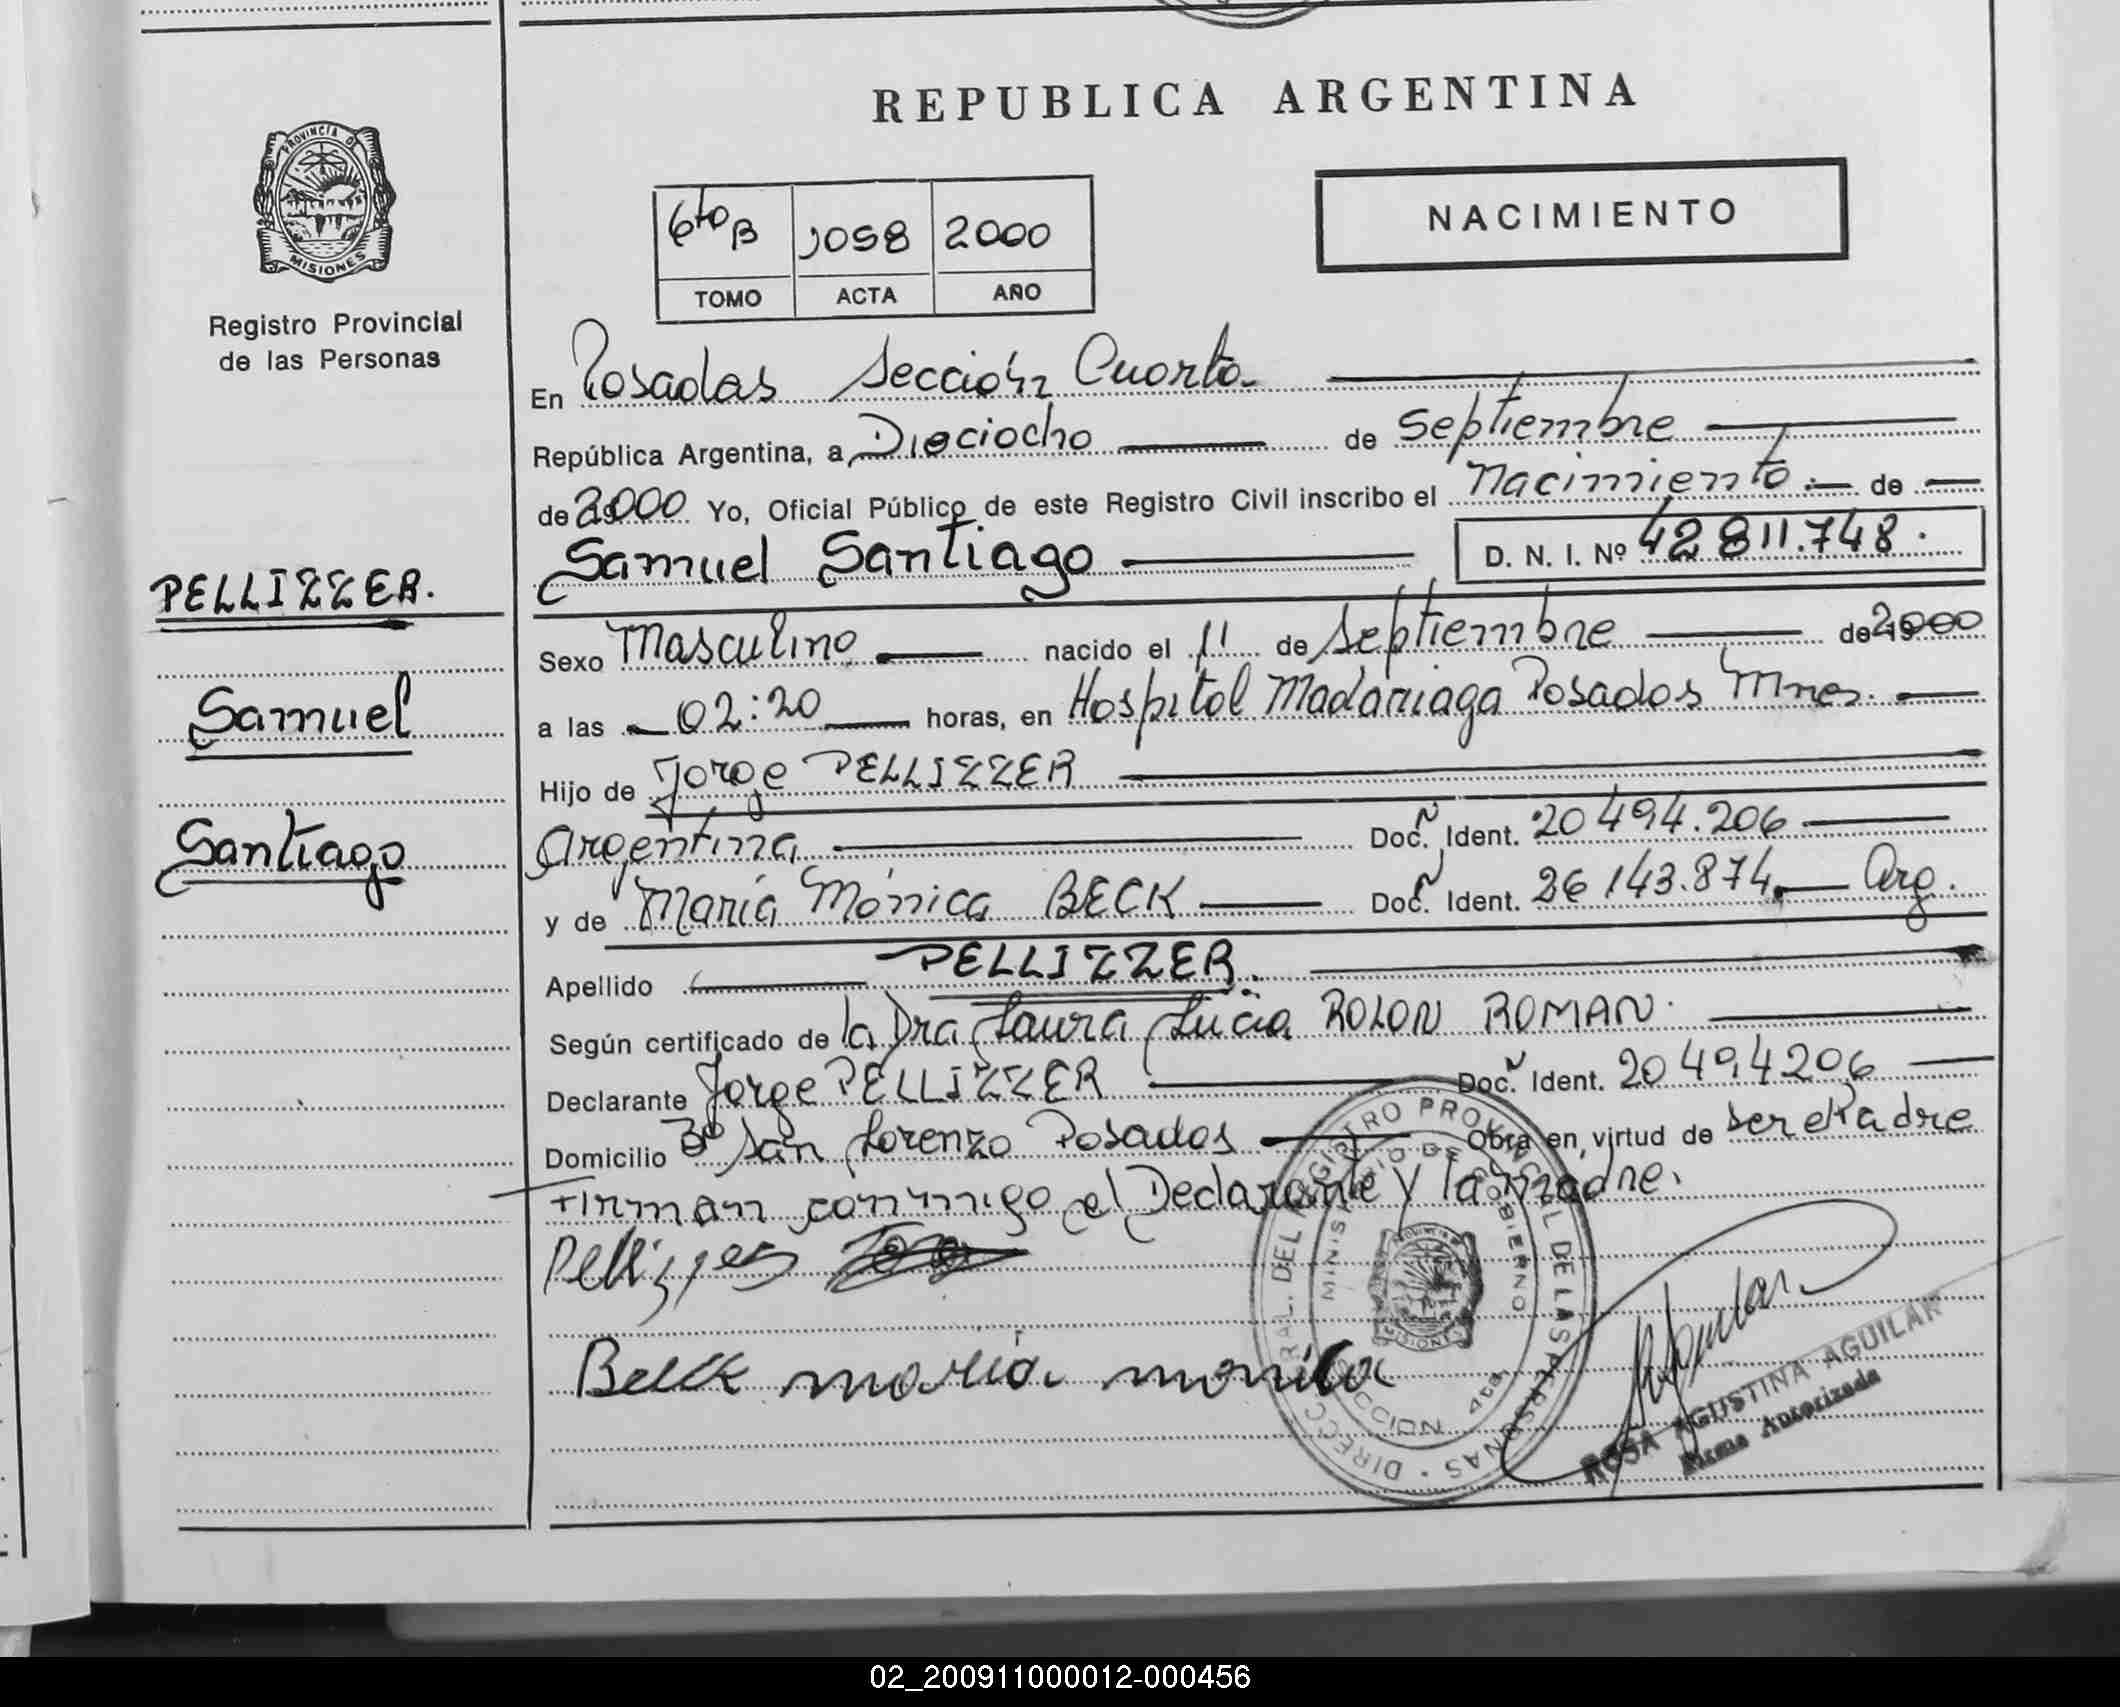 REPUBLICA ARGENTINA
PROVINCIA DE MISIONES
Registro Provincial
de las Personas
6to B 1058 2000
TOMO ACTA AÑO
NACIMIENTO
En Posadas Sección Cuarta
República Argentina, a Dieciocho de Septiembre
de 2000 Yo, Oficial Público de este Registro Civil inscribo el Nacimiento de
Samuel Santiago D. N. I. Nº 42 811.748.
PELLIZZER.
Samuel
Santiago
Sexo Masculino nacido el 11 de Septiembre de 2000
a las 02:20 horas, en Hospital Madariaga Posadas Mnes.
Hijo de Jorge PELLIZZER
Argentina Doc. Ident. 20 494.206
y de María Mónica BECK Doc. Ident. 26 143.874 Arg.
Apellido PELLIZZER.
Según certificado de la Dra Laura Lucia ROLON ROMAN.
Declarante Jorge PELLIZZER Doc. Ident. 20 494206
Domicilio Bº San Lorenzo Posadas Obra en virtud de ser el Padre
Firman conmigo el Declarante y la madre.
Pellizzer
Beck maria monica
DIRECC. GRAL. DEL REGISTRO PROVINCIAL DE LAS PERSONAS
MINISTERIO DE GOBIERNO
SECCION 4ta
MISIONES
ROSA AGUSTINA AGUILAR
Firma Autorizada
02_200911000012-000456